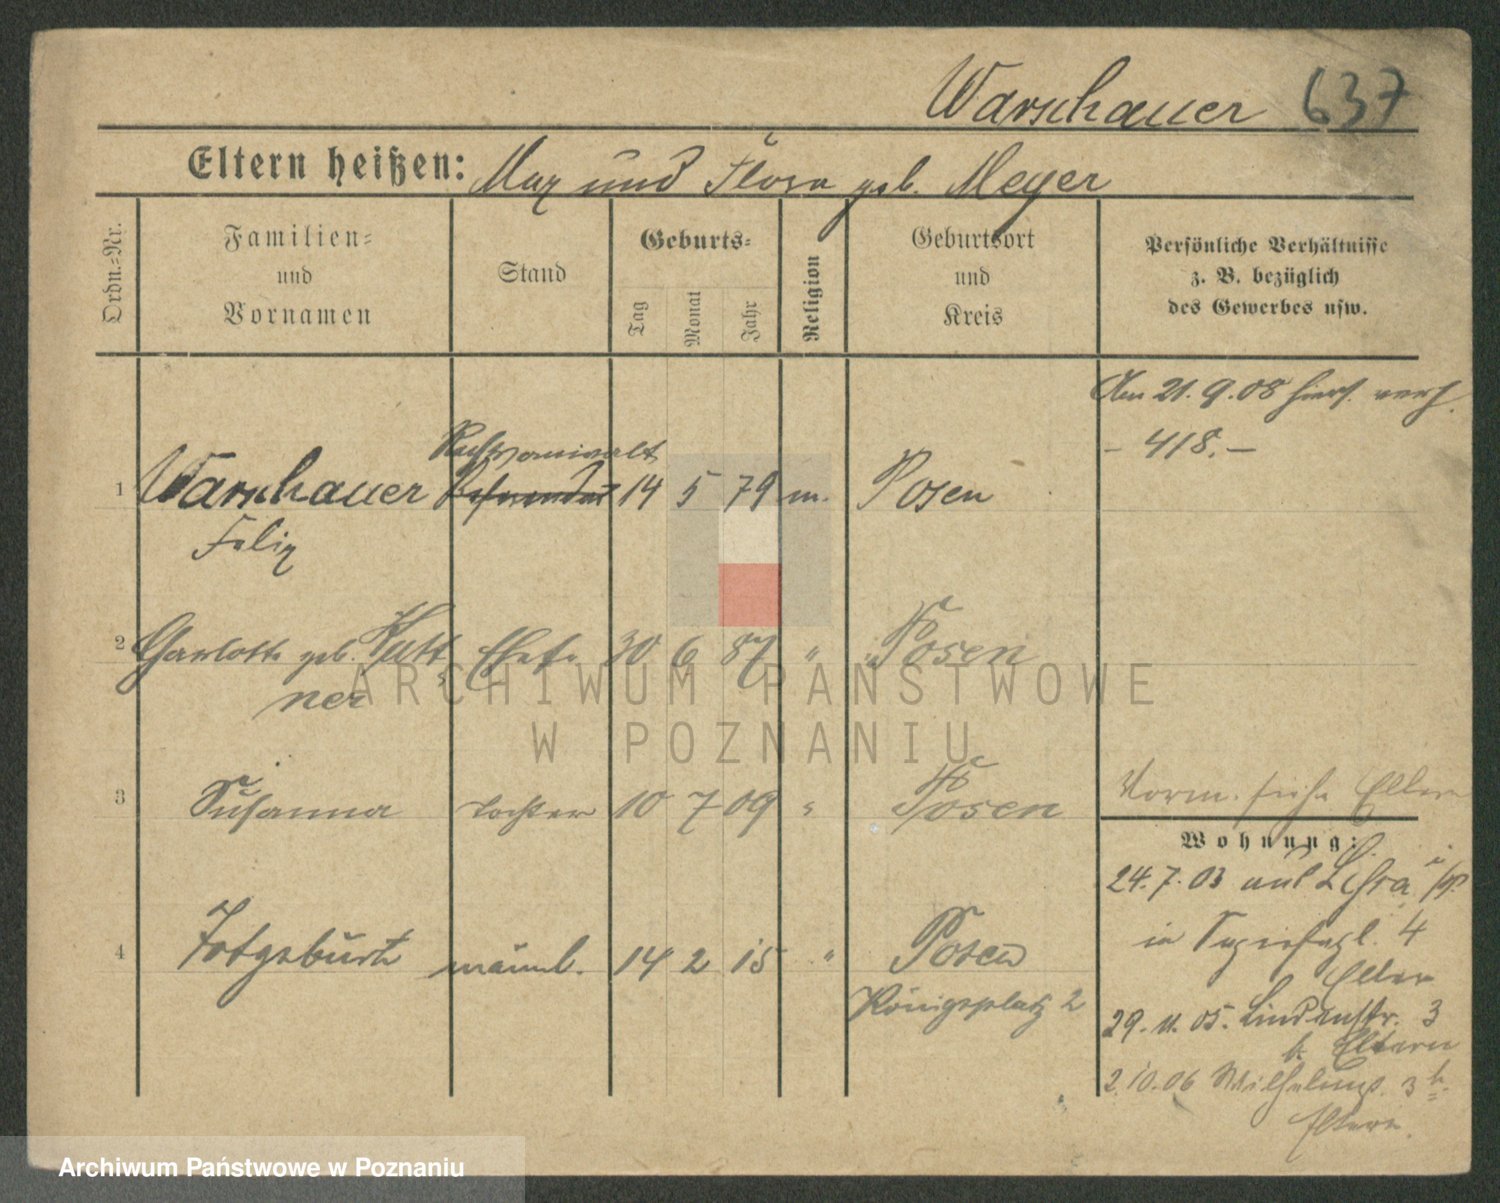 Warschauer 637
Eltern heißen: Max und Flora geb. Meyer
Ordn.=Nr.
Familien=
und
Vornamen
Stand
Geburts=
Tag
Monat
Jahr
Religion
Geburtsort
und
Kreis
Persönliche Verhältnisse
z. B. bezüglich
des Gewerbes usw.
Am 21.9.08 hiers. verh.
- 418. -
Rechtsanwalt
1 Warschauer Referendar 14 5 79 m. Posen
Felix
2 Charlotte geb. Katt= Ehefr. 30 6 87 " Posen
ner
3 Susanna Tochter 10 7 09 " Posen
Vorm. siehe Eltern
Wohnung:
24.7.03 aus
in 4
Eltern
4 Totgeburt männl. 14 2 15 " Posen
Königsplatz 2
29.11.05. Lindenstr. 3
b. Eltern
2.10.06 Wilhelmspl. 3 b.
Eltern.
ARCHIWUM PAŃSTWOWE
W POZNANIU
Archiwum Państwowe w Poznaniu